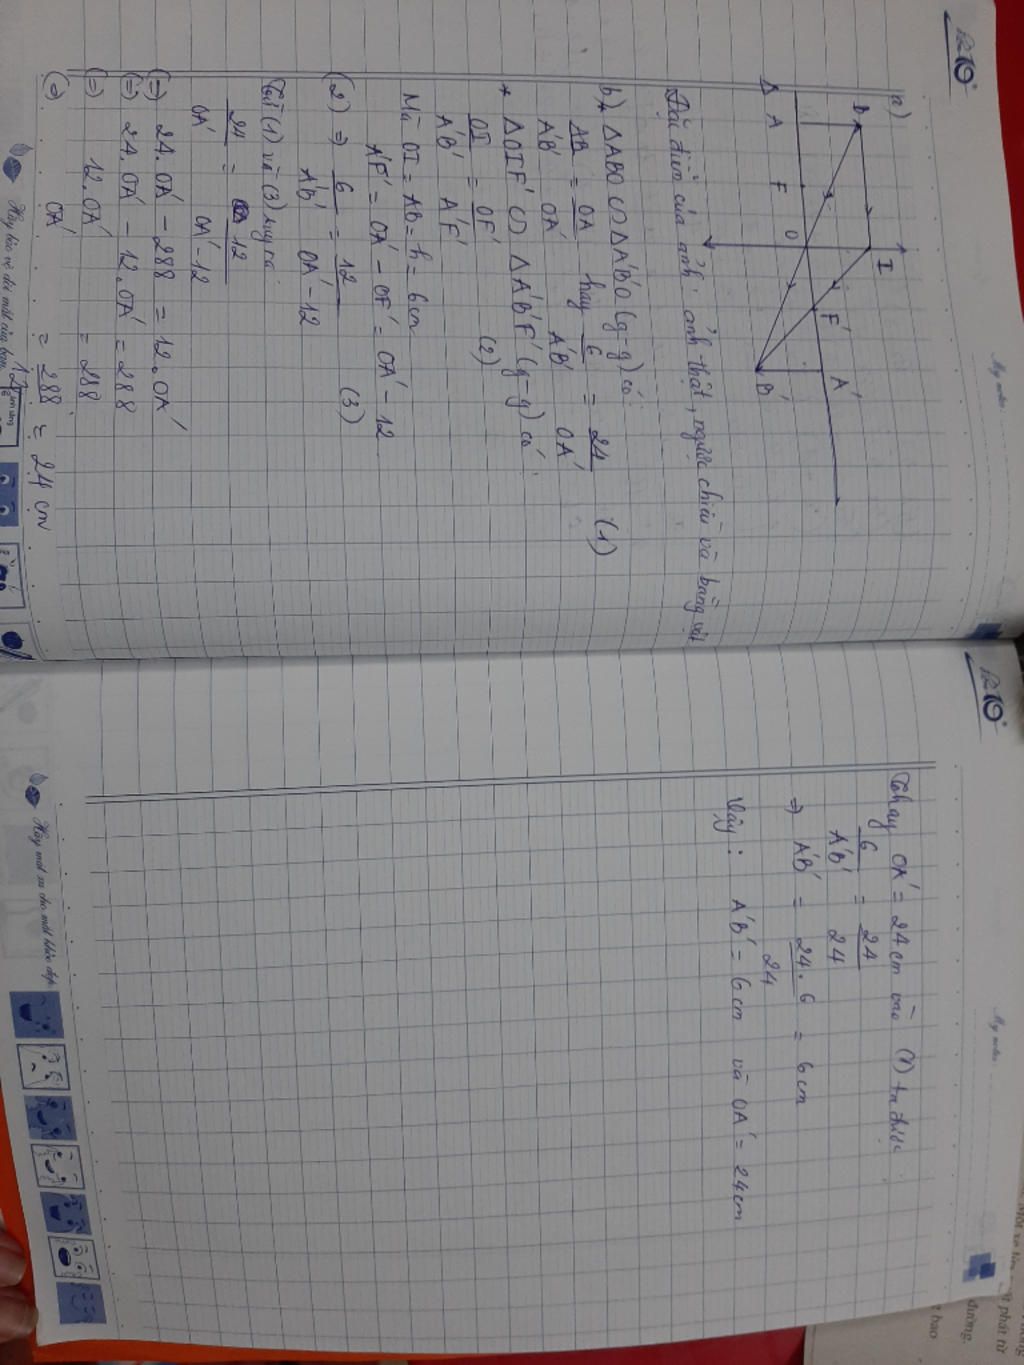 My notes:
a)
B
I
Δ
A
F
O
F'
A'
B'
Đặc điểm của ảnh: ảnh thật, ngược chiều và bằng vật
b) * ΔABO ∽ ΔA'B'O (g-g) có:
AB/A'B' = OA/OA' hay 6/A'B' = 24/OA' (1)
* ΔOIF' ∽ ΔA'B'F' (g-g) có:
OI/A'B' = OF'/A'F' (2)
Mà OI = AB = h = 6cm
A'F' = OA' - OF' = OA' - 12
(2) => 6/A'B' = 12/OA'-12 (3)
Từ (1) và (3) suy ra:
24/OA' = 12/OA'-12
(=) 24.OA' - 288 = 12.OA'
(=) 24.OA' - 12.OA' = 288
(=) 12.OA' = 288
(=) OA' = 288/12 = 24 cm
Hãy bảo vệ đôi mắt của bạn
My notes:
Thay OA' = 24cm vào (1) ta được:
6/A'B' = 24/24
=> A'B' = 24.6/24 = 6cm
Vậy: A'B' = 6cm và OA' = 24cm
phát từ
đường.
bao